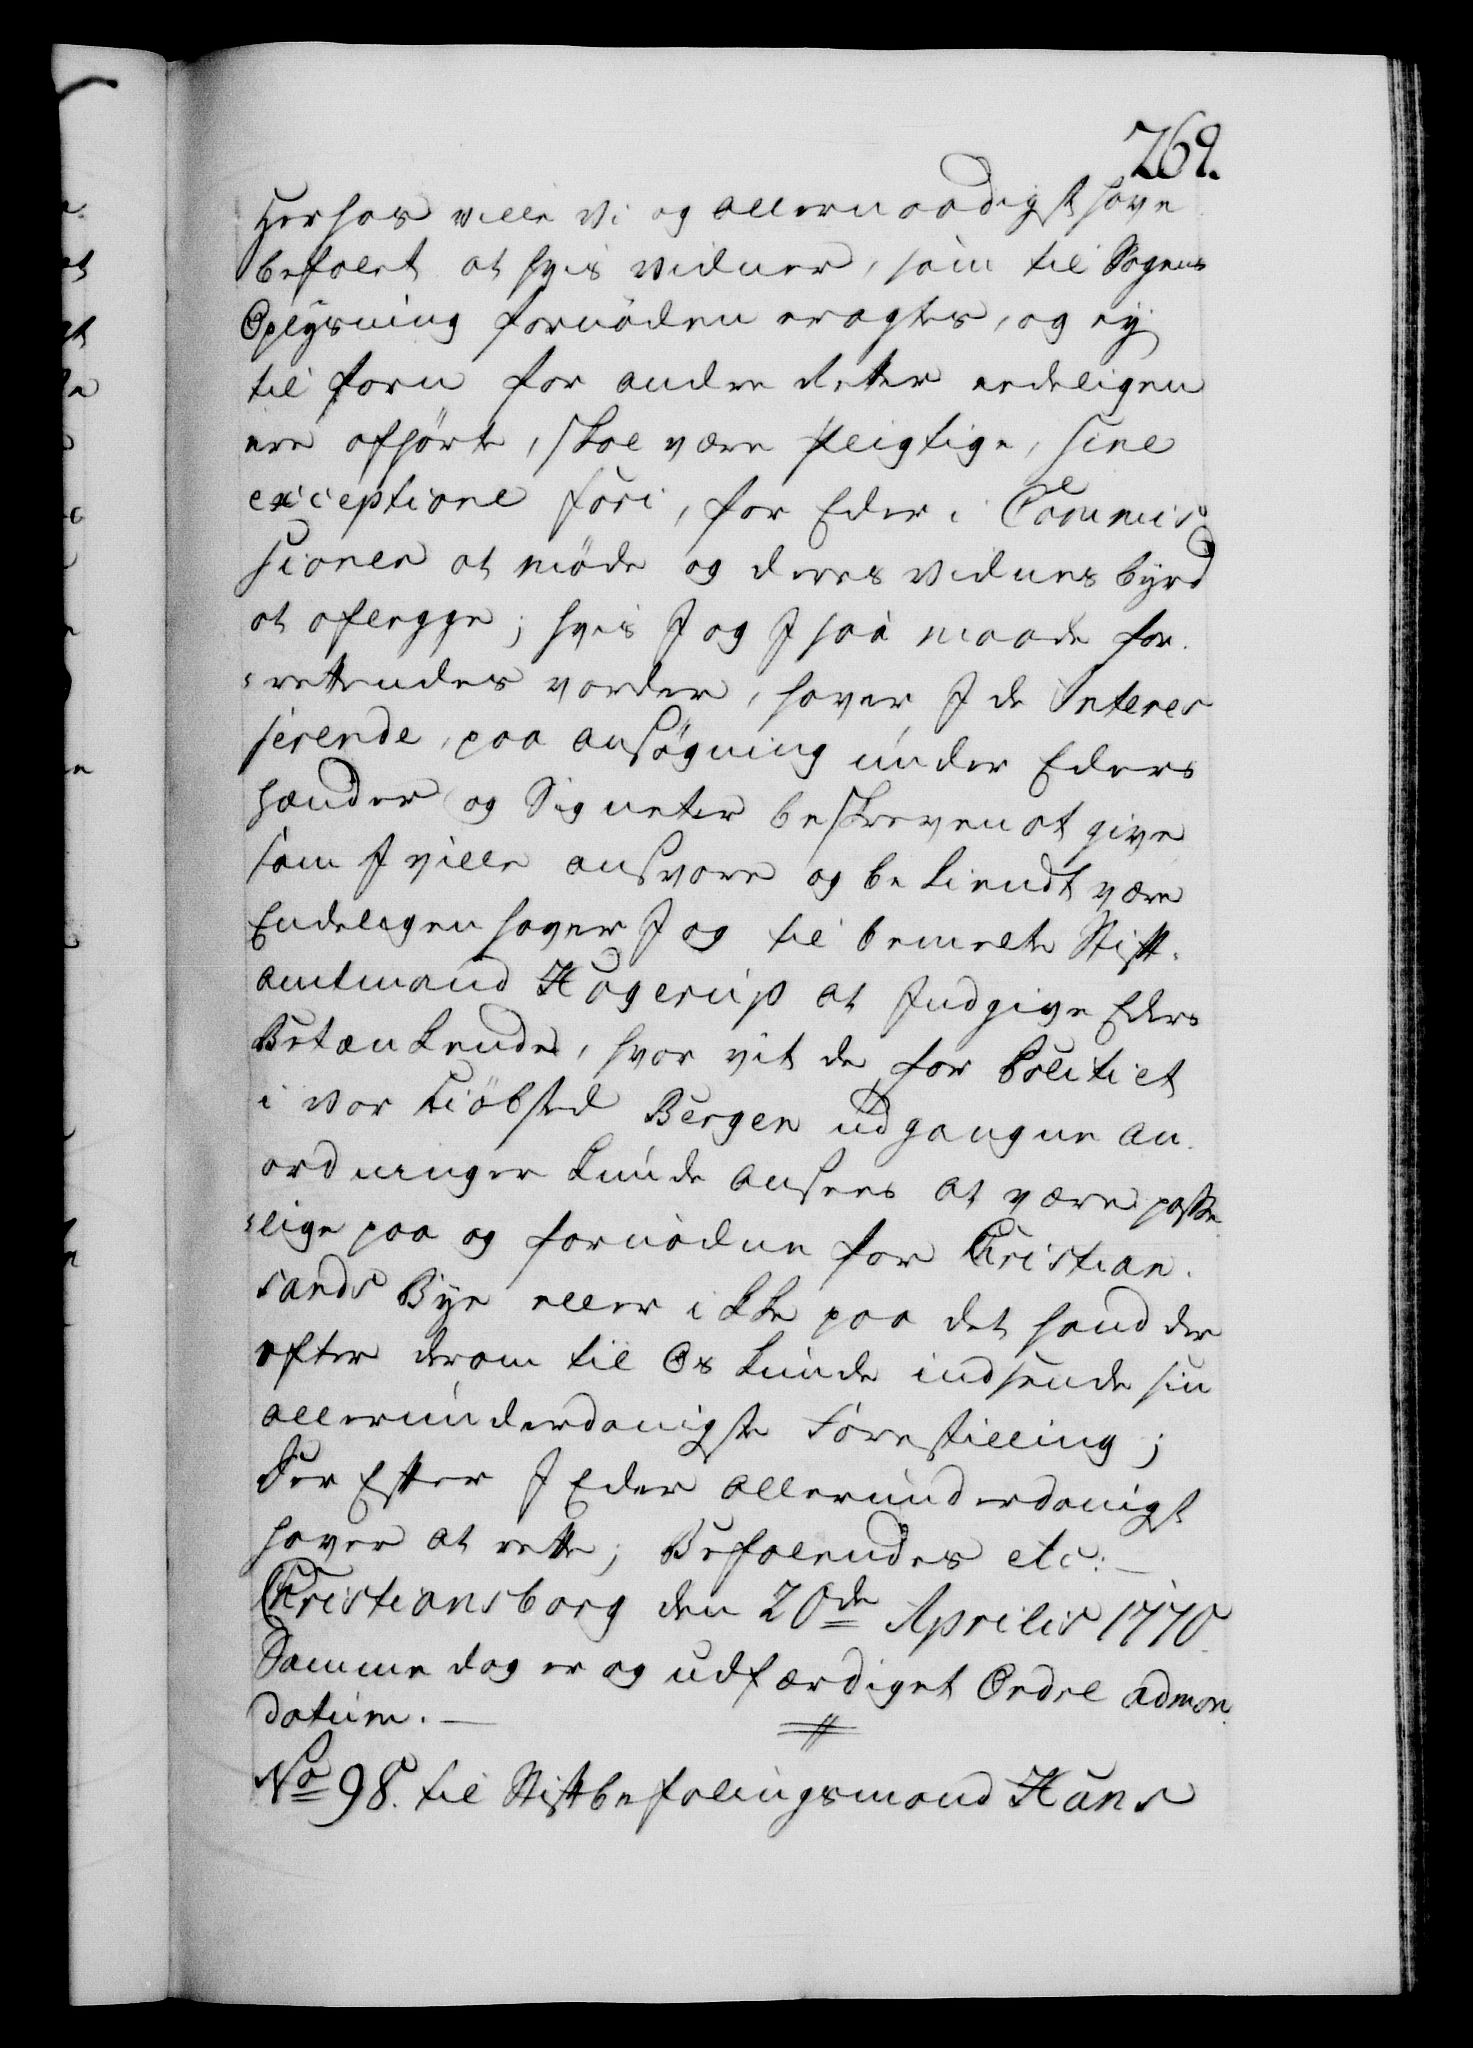 269.
Herhos ville Vi og allernaadigst have
befalet at hvis Vidner, som til Sagens
Oplysning fornøden eragtes, og ey
til forn for andre Retter eedeligen
ere afhørte, skal være pligtige, sine
exceptione fori, for Eder i Commis-
sionen at møde og deres Vidnes byrd
at aflegge; hvis I og I saa maade for-
rettendes vorder, haver I de Interes
serende, paa ansøgning under Eders
hænder og Signeter beskreven at give
som I ville ansvare og bekiendt være
Endeligen haver I og til bemelte Stift-
amtmand Hagerup at Indgive Eders
Betænkende, hvor vit de for Politiet
i vor Kiöbsted Bergen udgangne An-
ordninger kunde ansees at være passe
lige paa og fornødne for Christian-
sands Bye eller ikke paa det hand der
efter derom til Os kunde indsende sin
allerunderdanigste Forestilling;
Der Efter I Eder allerunderdanigst
haver at rette; Befalendes etc:
Christiansborg den 20de Aprilis 1770.
Samme dag er og udfærdiget Ordre ad man
datum.
No 98. til Stiftbefalingsmand Hans